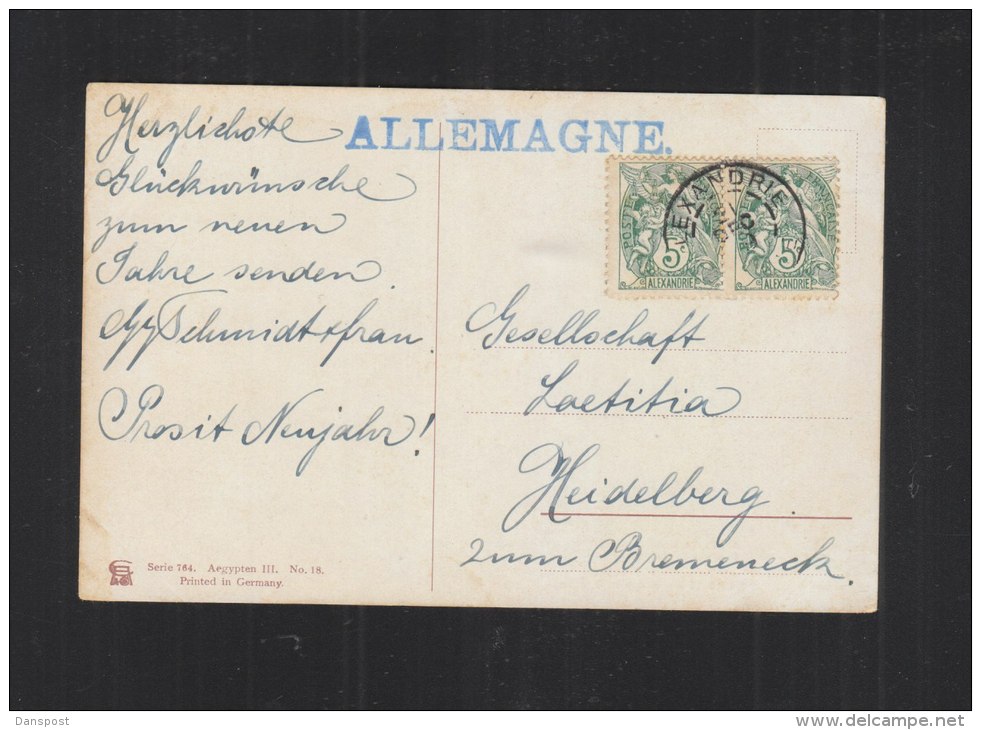 Herzlichste
Glückwünsche
zum neuen
Jahre senden
Schmidt + frau.
Prosit Neujahr!
ALLEMAGNE.
5c 5c
ALEXANDRIE ALEXANDRIE
Gesellschaft
Laetitia
Heidelberg
zum Bremeneck.
Serie 764. Aegypten III. No. 18.
Printed in Germany.
Danspost
www.delcampe.net